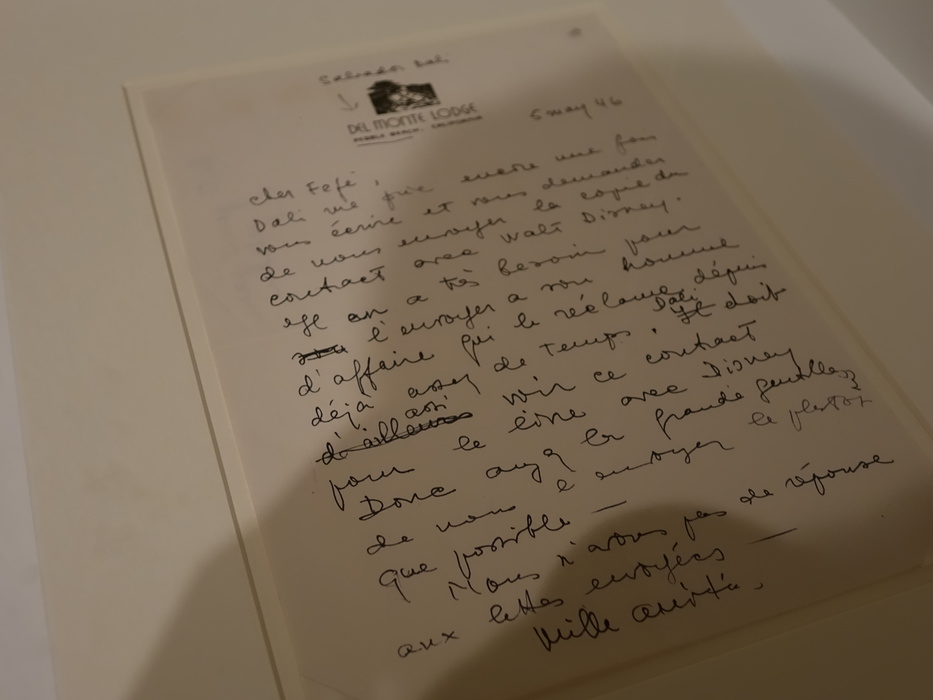 Salvador Dali
DEL MONTE LODGE
PEBBLE BEACH, CALIFORNIA
5 may 46
cher Fefé,
Dali me prie encore une fois
vous écrire et vous demander
de nous envoyer la copie du
contract avec Walt Disney.
on a très besoin pour
l'envoyer a son homme
d'affaire qui le réclame dépuis
déjà assez de temps. Dali doit
voir ce contract
pour le livre avec Disney
Donc ayez la grande gentillesse
de nous envoyer le plustot
que possible —
Nous n'avons pas de réponse
aux lettes envoyées —
Mille amitiés.